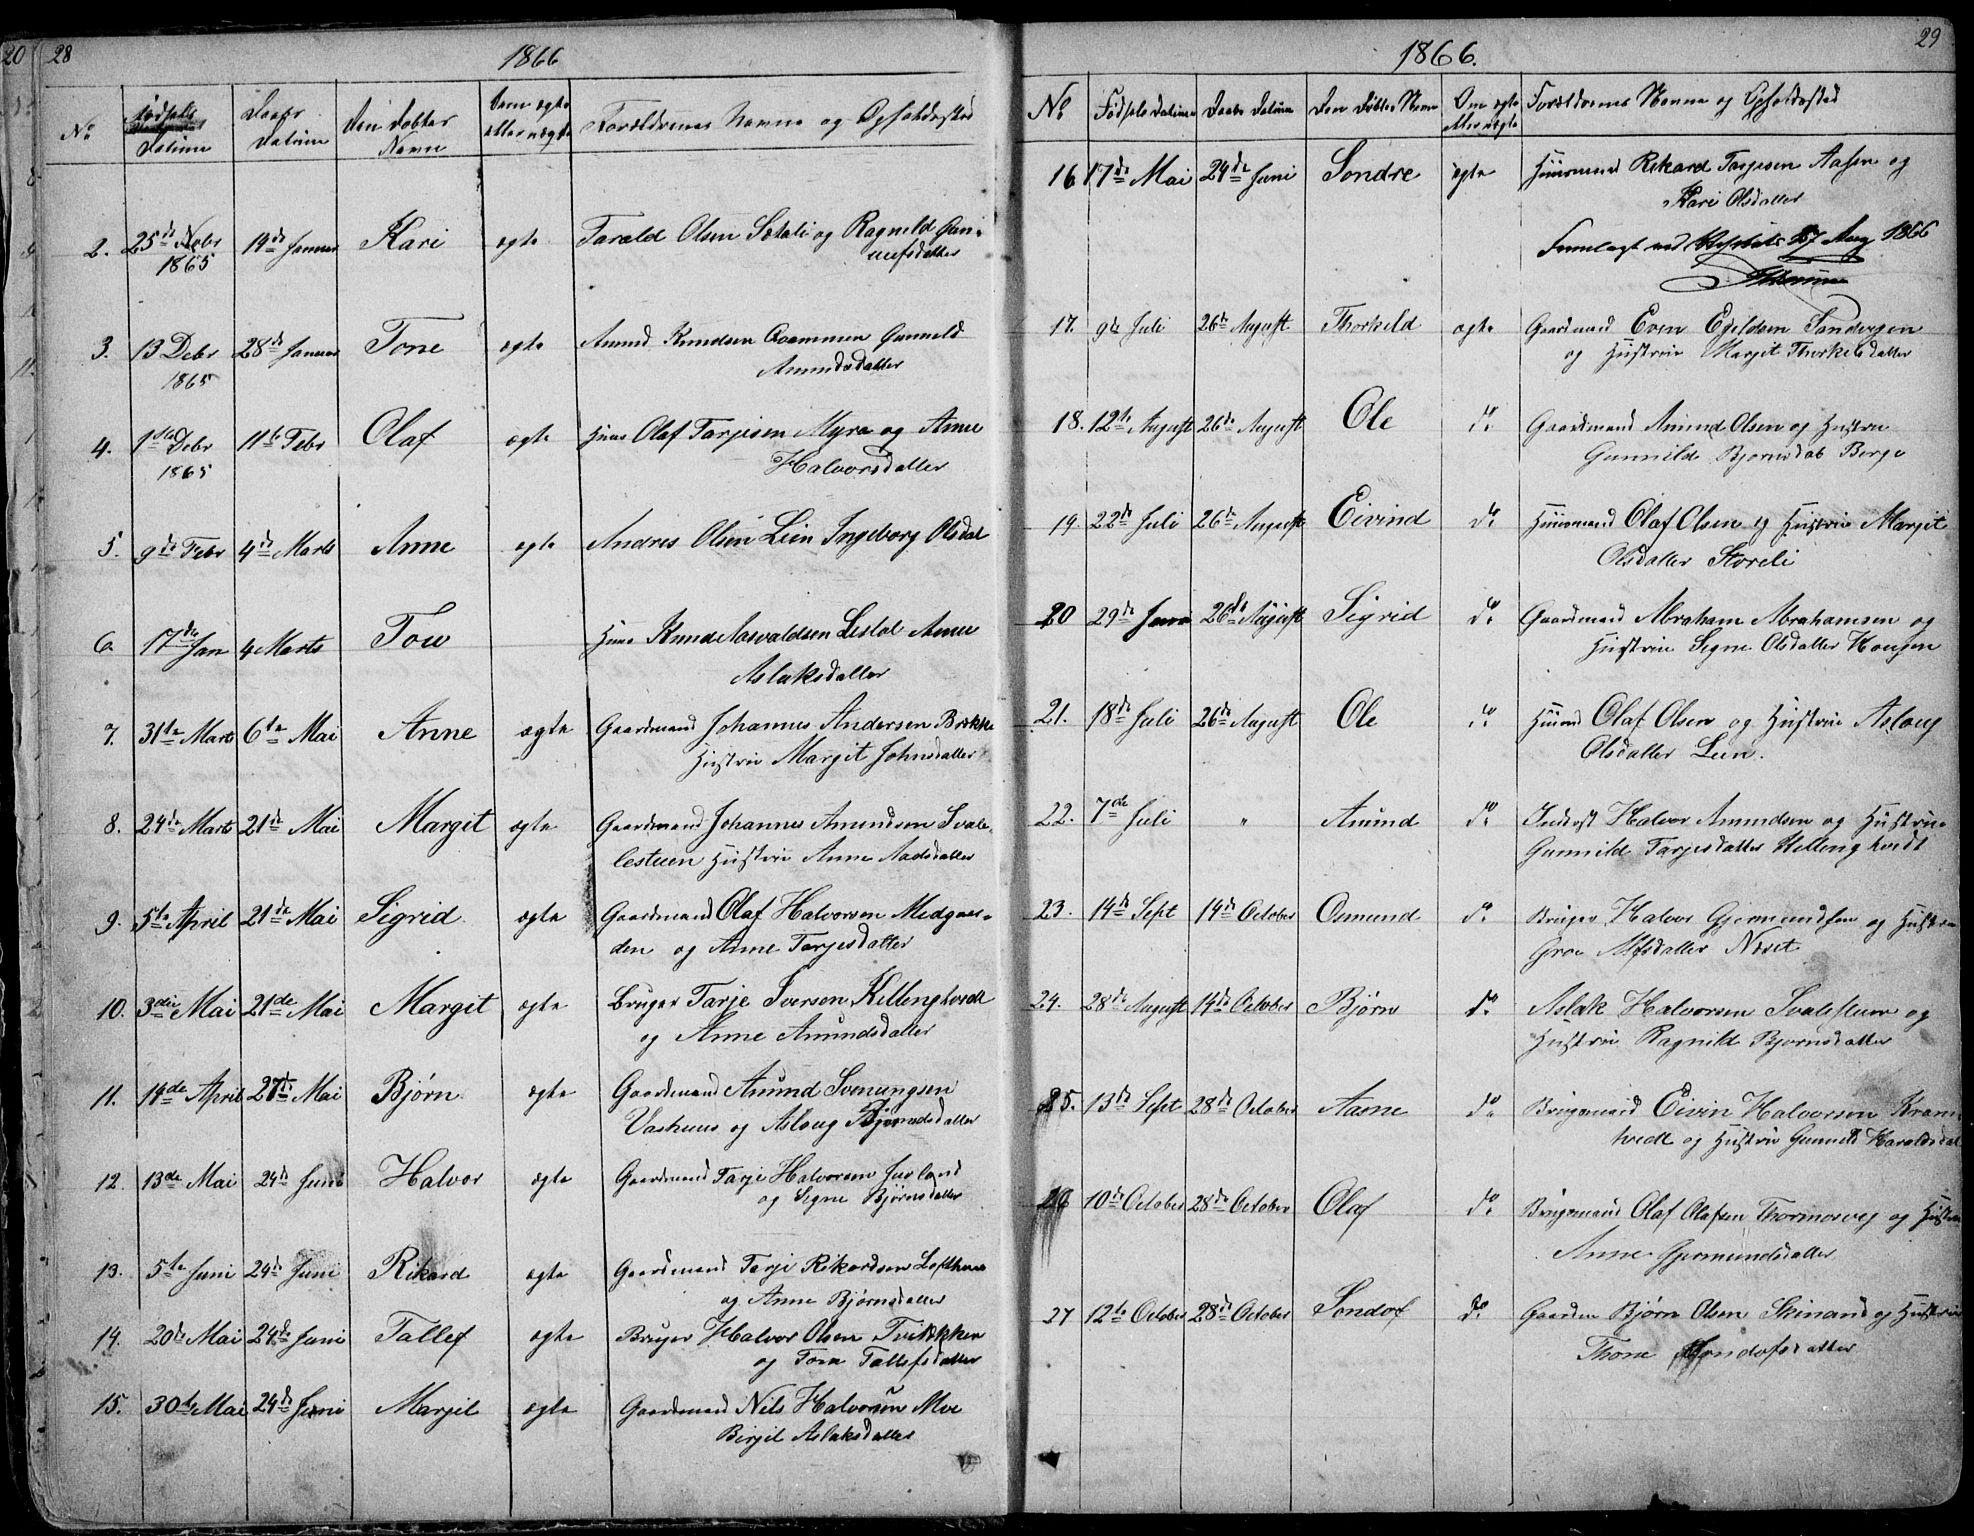 28
1866
No
Fødsels Datum
Daabs Datum
Den Døbtes Navn
Om ægte eller uægte
Forældrenes Navne og Opholdssted
2. 25de Novbr 1865 14de Januar Kari ægte Tarald Olsen Sætali og Ragnild Gun-
uufsdatter
3. 13 Debr 1865 28de Januar Tone ægte Amund Knudsen Gunnild
Amundsdatter
4. 1ste Debr 1865 11te Febr Olaf ægte Huus Olaf Tarjesen Myra og Anne
Halvorsdatter
5. 9de Febr 4de Marts Anne ægte Andres Olsen Lien Ingeborg Olsdat
6. 17de Jan 4 Marts Tov Huus Knud Aasvaldsen Anne
Aslaksdatter
7. 31te Marts 6te Mai Anne ægte Gaardmand Johannes Andersen Bækka
Hustrue Margit Johnsdatter
8. 24de Marts 21de Mai Margit ægte Gaardmand Johannes Amundsen Svale-
lestuen Hustrue Anne Aadsdatter
9. 5te April 21de Mai Sigrid ægte Gaardmand Olaf Halvorsen Midgaar-
den og Anne Tarjesdatter
10. 3die Mai 21de Mai Margit ægte Bruger Tarje Iversen Kellinghvedt
og Anne Amundsdatter
11. 14de April 27de Mai Bjørn ægte Gaardmand Amund Svenungsen
Vashuus og Asloug Bjørnsdatter
12. 13de Mai 24de Juni Halvor ægte Gaardmand Tarje Halvorsen Juvland
og Signe Bjørnsdatter
13. 5te Juni 24de Juni Rikard ægte Gaardmand Tarje Rikardsen Lofthuus
og Anne Bjørnsdatter
14. 20de Mai 24de Juni Tallef ægte Bruger Halvor Olsen
og Tone Tallefsdatter
15. 30te Mai 24de Juni Margit ægte Gaardmand Nils Halvorsen Moe
Birgit Aslaksdatter
29
1866.
No
Fødsels Datum
Daabs Datum
Den Døbtes Navn
Om ægte eller uægte
Forældrenes Navne og Opholdssted
16 17de Mai 24de Juni Sondre ægte Huusmand Rikard Tarjesen Aasen og
Kari Olsdatter
Fremlagt ved 27 Aug 1866
17. 9de Juli 26de August Thorkild ægte Gaardmand Even Egildsen
og Hustrue Margit Thorkelsdatter
18. 12te August 26de August Ole do Gaardmand Amund Olsen og Hustrue
Gunnild Bjørnsdat Berge
19. 22de Juli 26de August Eivind do Huusmand Olaf Olsen og Hustrue Margit
Olsdatter Storeli
20 29de Juni 26de August Sigrid do Gaardmand Abraham Abrahamsen og
Hustrue Signe Olsdatter Hougen
21. 18de Juli 26de August Ole do Huusmd Olaf Olsen og Hustrue Asloug
Olsdatter Lien.
22. 7de Juli " Amund do Inderst Halvor Amundsen og Hustrue
Gunnild Tarjesdatter Kellinghvedt
23. 14de Sept 14de October Osmund do Bruger Halvor Gjermundsen og Hustrue
Groe Alfsdatter Næset
24. 28de August 14de October Bjørn do Aslak Halvorsen Svalestuen og
Hustrue Ragnild Bjørnsdatter
25. 13de Sept 28de October Aasne do Brugsmand Eivin Halvorsen Kram-
hvedt og Hustrue Gunnild Haraldsdat
26 10de October 28de October Olaf do Brugsmand Olaf Olafsen Thormosvej og Hustrue
Anne Gjermundsdatter
27 12te October 28de October Sondof do Gaardm Bjørn Olsen Skinand og Hustrue
Thone Sondofsdatter